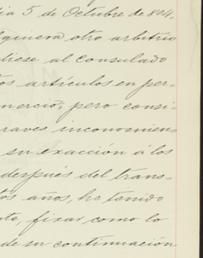 ia 5 de Octubre de 804,
lquiera otro arbitrio
diese al Consulado
os artículos en per
mercio; pero consi
raves inconvenien
su exacción á los
después del trans
os años, ha tenido
to, fixar como lo
de su continuación